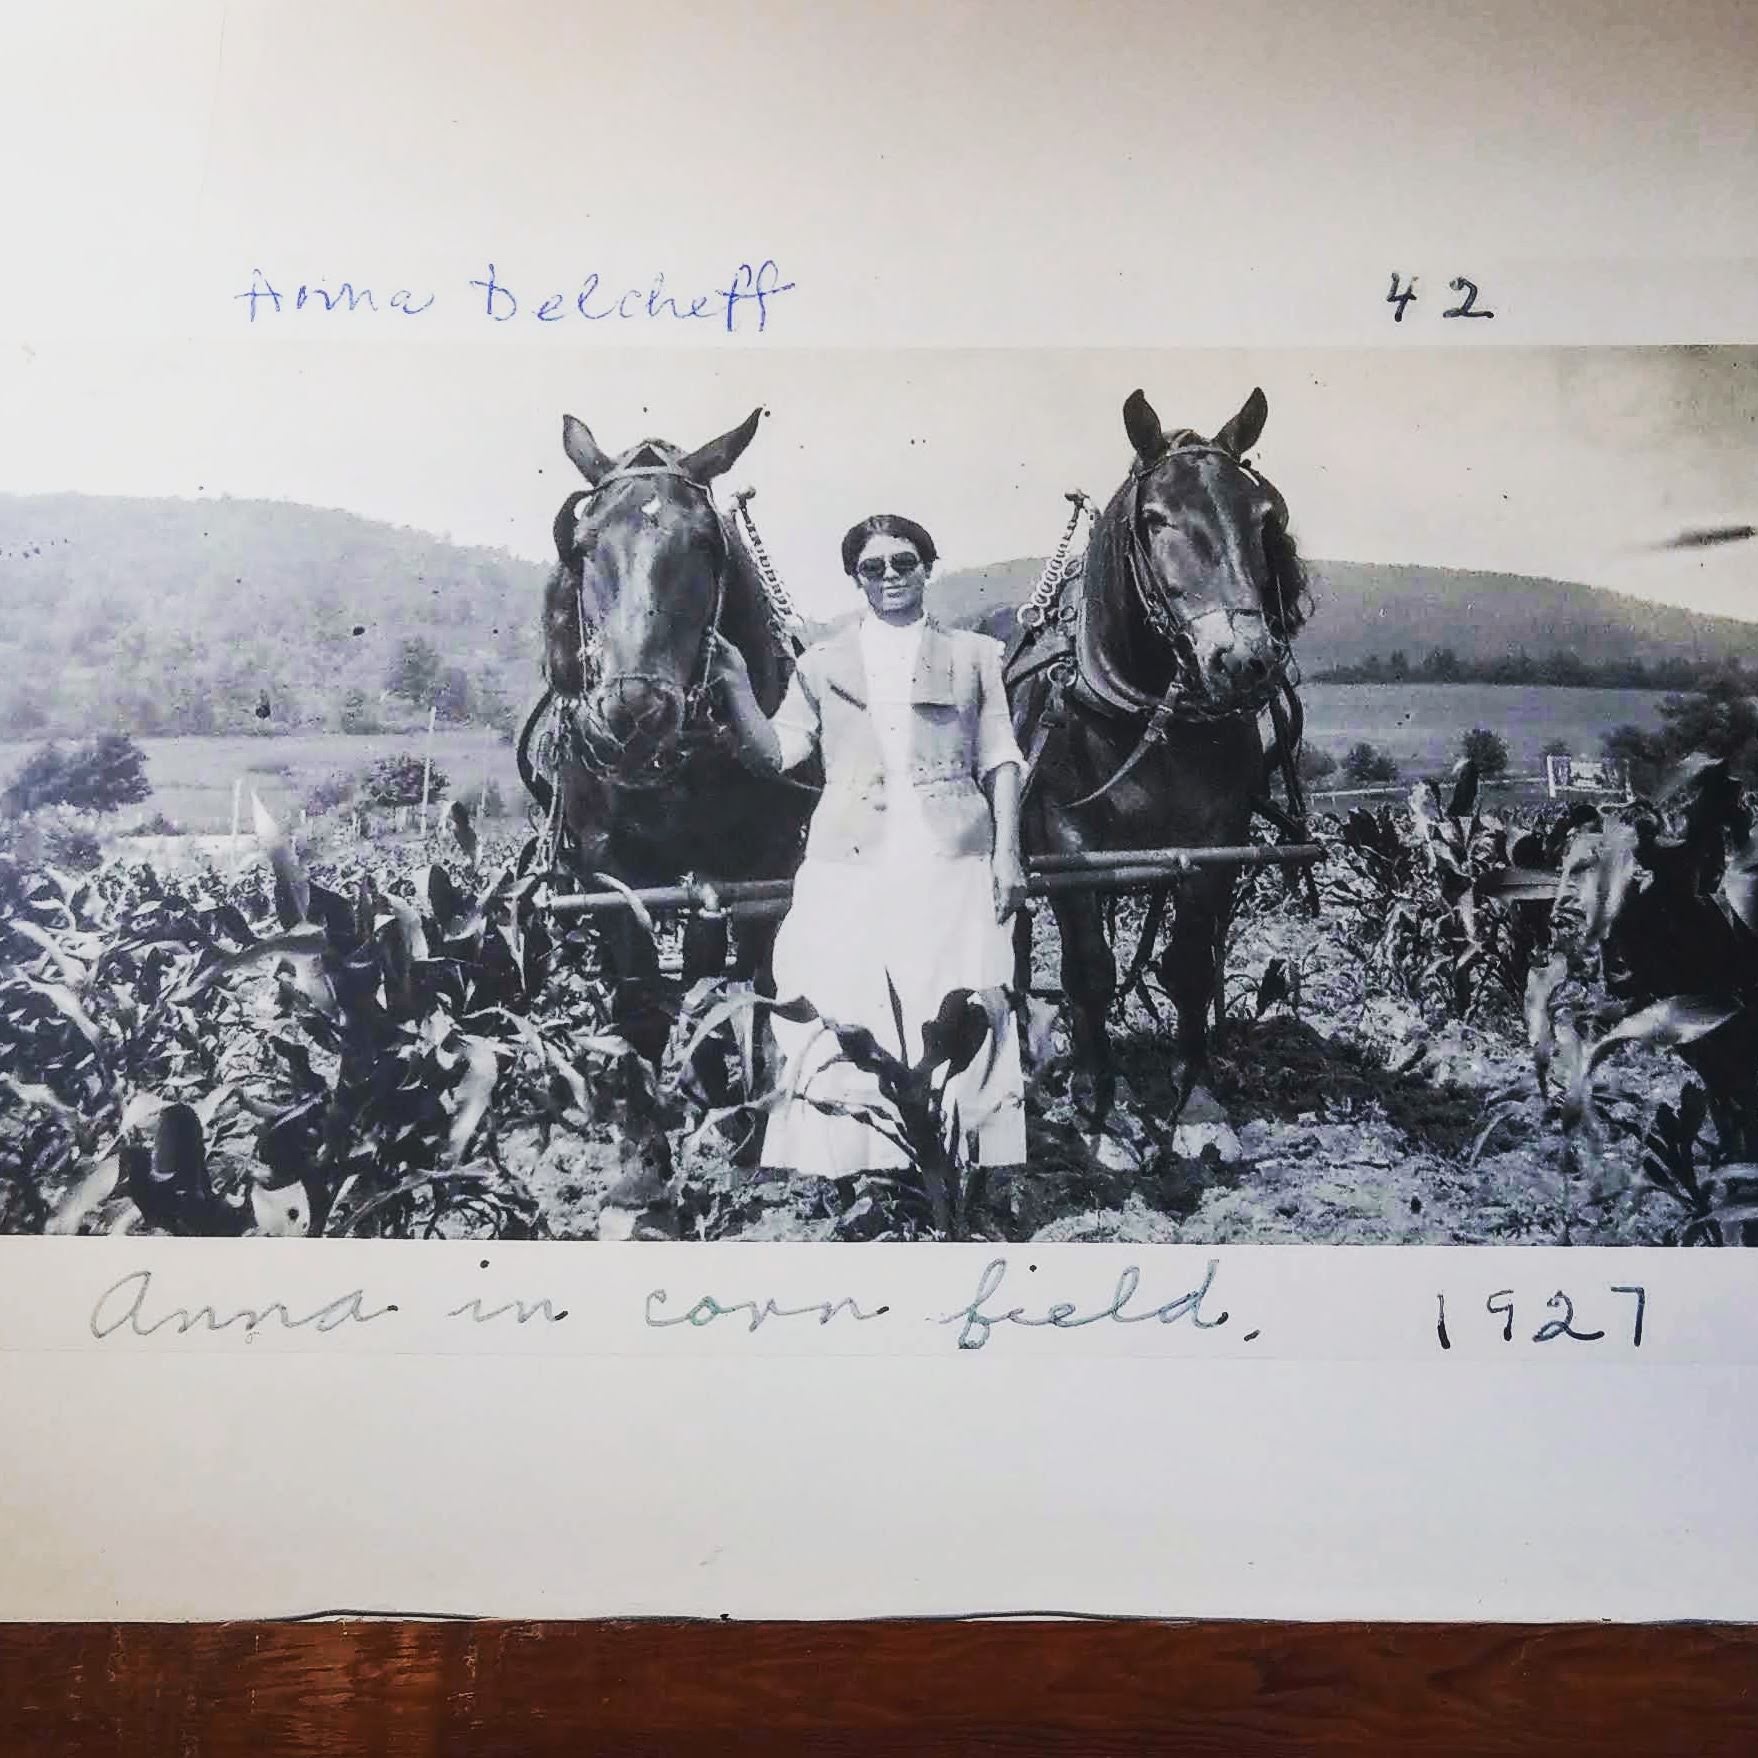 Anna Delcheff 42
Anna in corn field. 1927